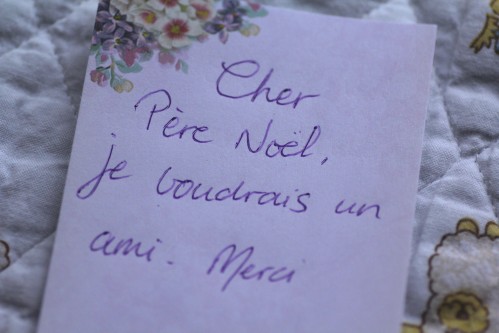 Cher
Père Noël,
je voudrais un
ami. Merci